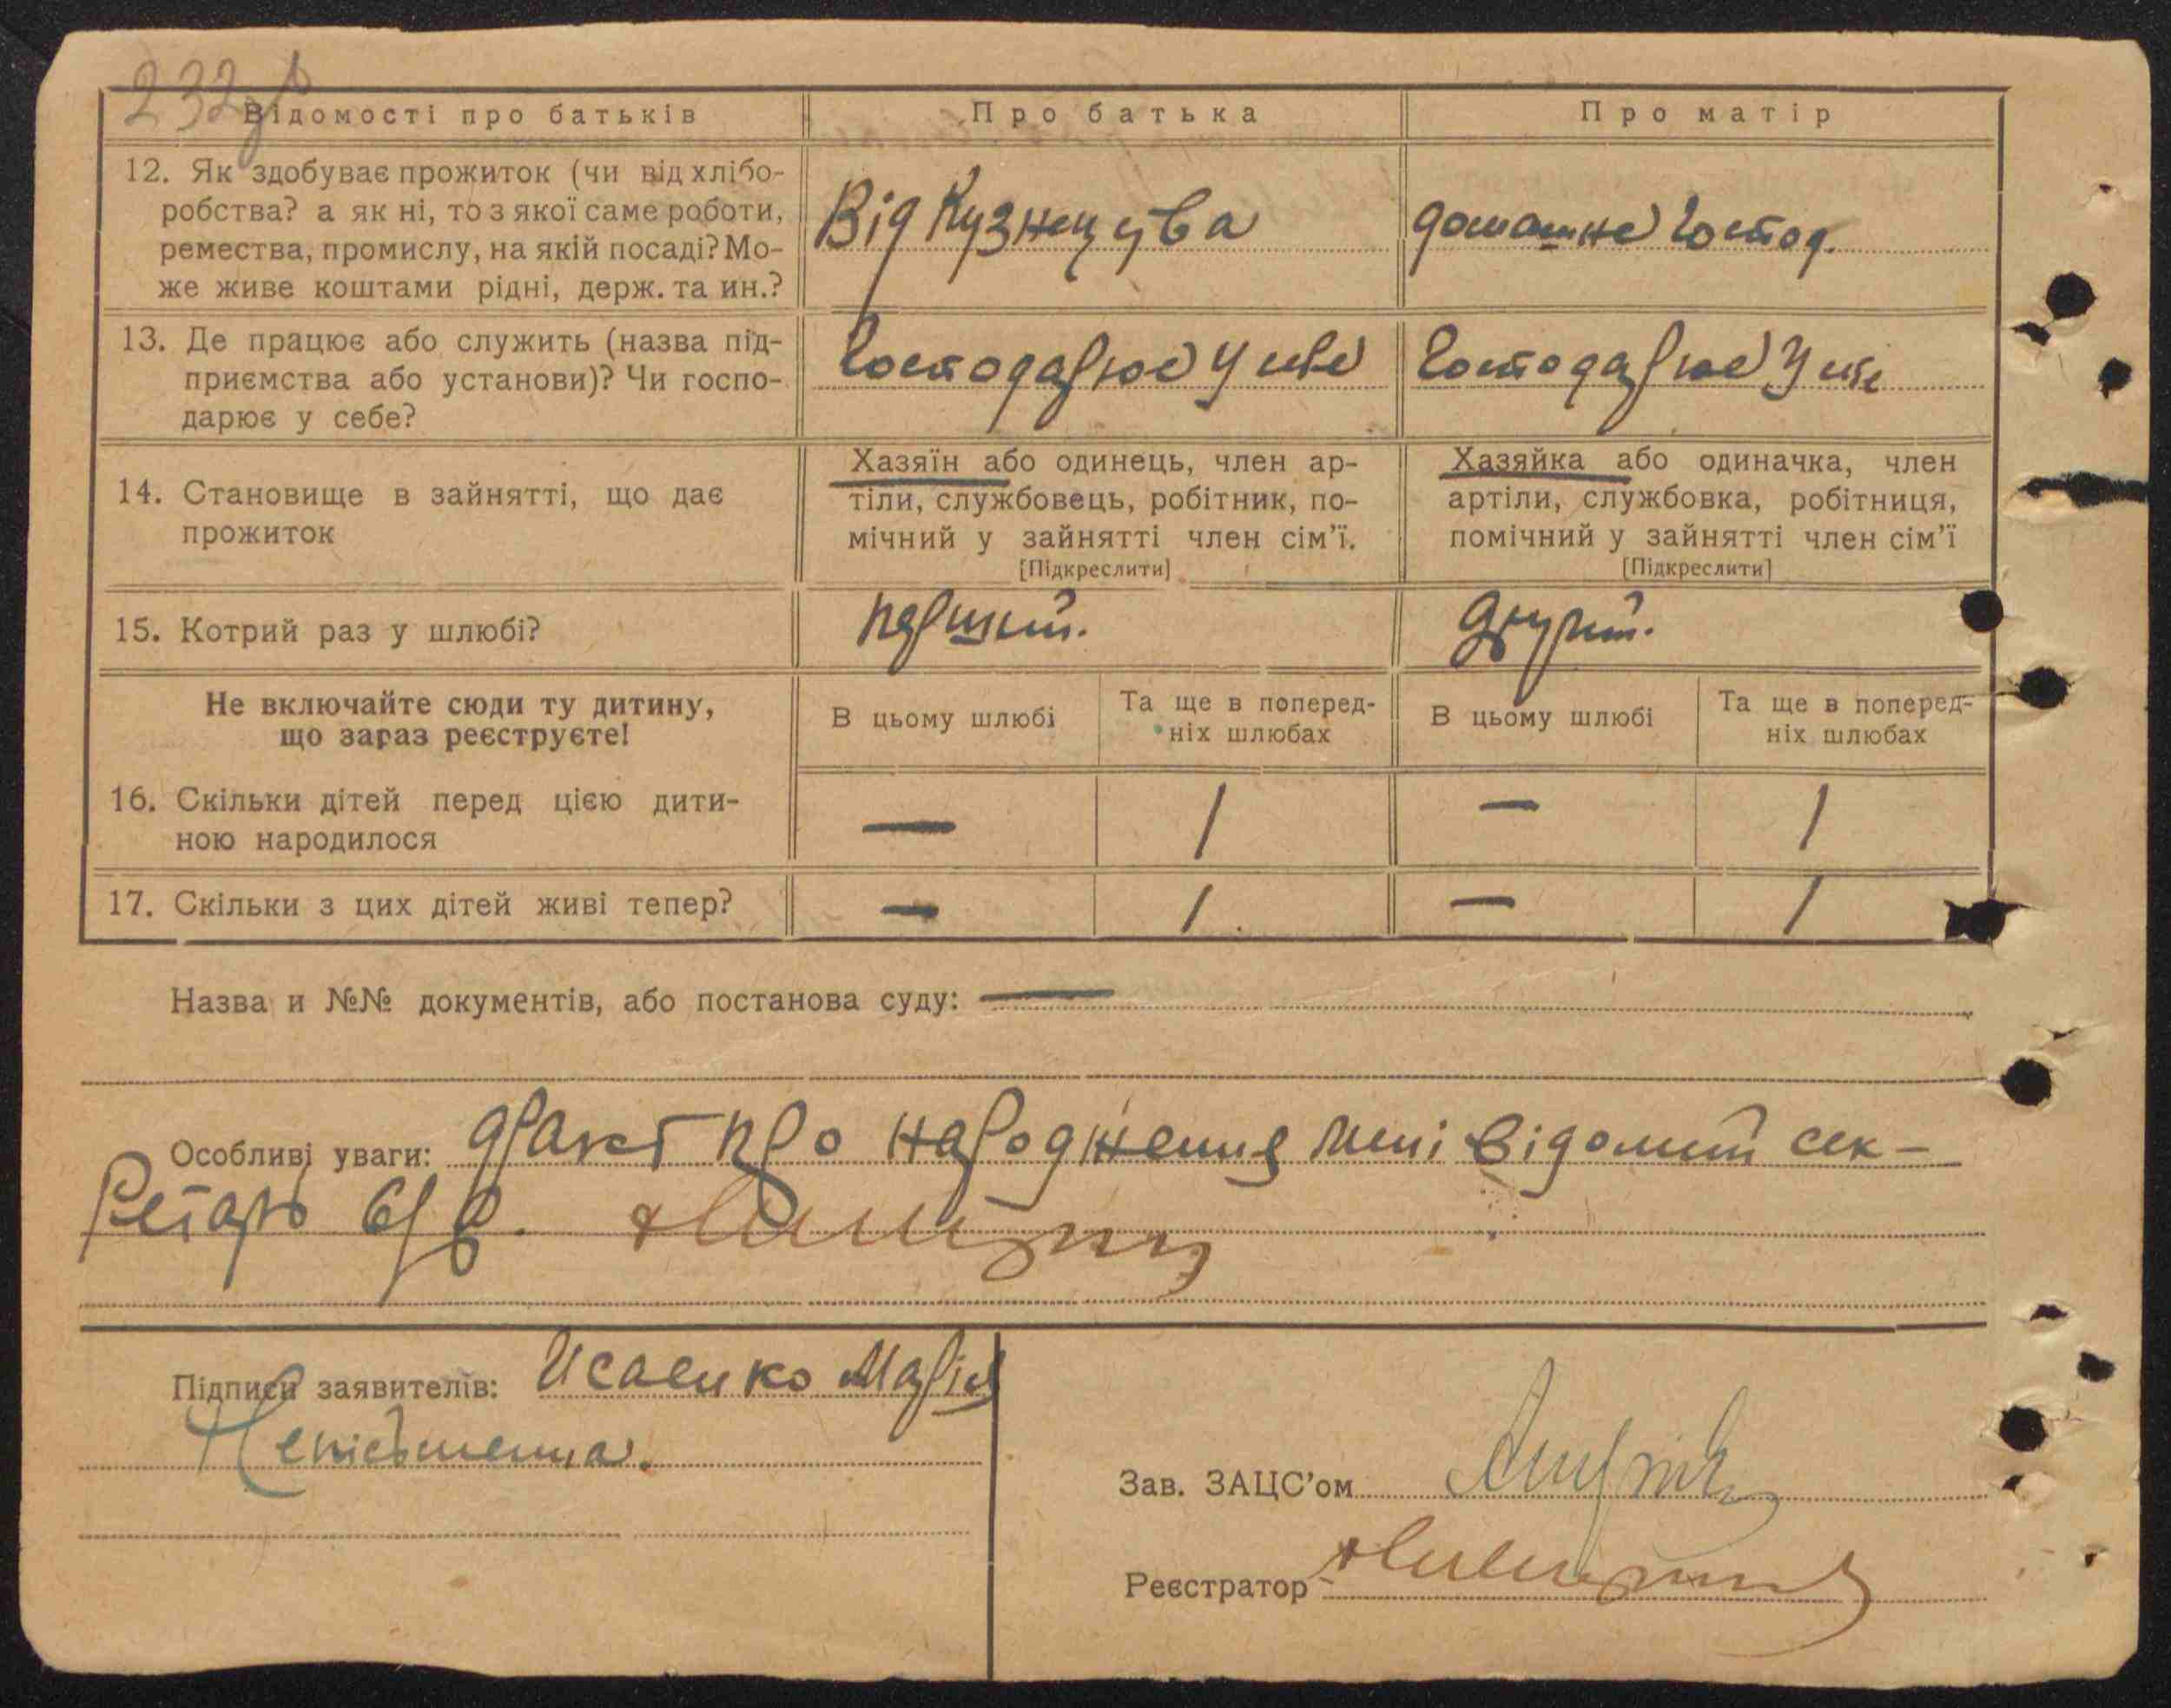 232
Відомості про батьків
Про батька
Про матір
12. Як здобуває прожиток (чи від хлібо-
робства? а як ні, то з якої саме роботи,
ремества, промислу, на якій посаді? Мо-
же живе коштами рідні, держ. та ин.?
Від Кузнецува
домашнє Господ.
13. Де працює або служить (назва під-
приємства або установи)? Чи госпо-
дарює у себе?
Господарює У себе
Господарює У себе
14. Становище в зайнятті, що дає
прожиток
Хазяїн або одинець, член ар-
тіли, службовець, робітник, по-
мічний у зайнятті член сім'ї.
[Підкреслити]
Хазяйка або одиначка, член
артіли, службовка, робітниця,
помічний у зайнятті член сім'ї
[Підкреслити]
15. Котрий раз у шлюбі?
перший.
другий.
Не включайте сюди ту дитину,
що зараз реєструєте!
В цьому шлюбі
Та ще в поперед-
ніх шлюбах
В цьому шлюбі
Та ще в поперед-
ніх шлюбах
16. Скільки дітей перед цією дити-
ною народилося
— 1 — 1
17. Скільки з цих дітей живі тепер?
— 1 — 1
Назва и №№ документів, або постанова суду: —
Особливі уваги: факт про народження мені відомий сек-
ретарь с/р.
Підписи заявителів: Исаенко Марія
Неписьменна.
Зав. ЗАЦС'ом
Реєстратор